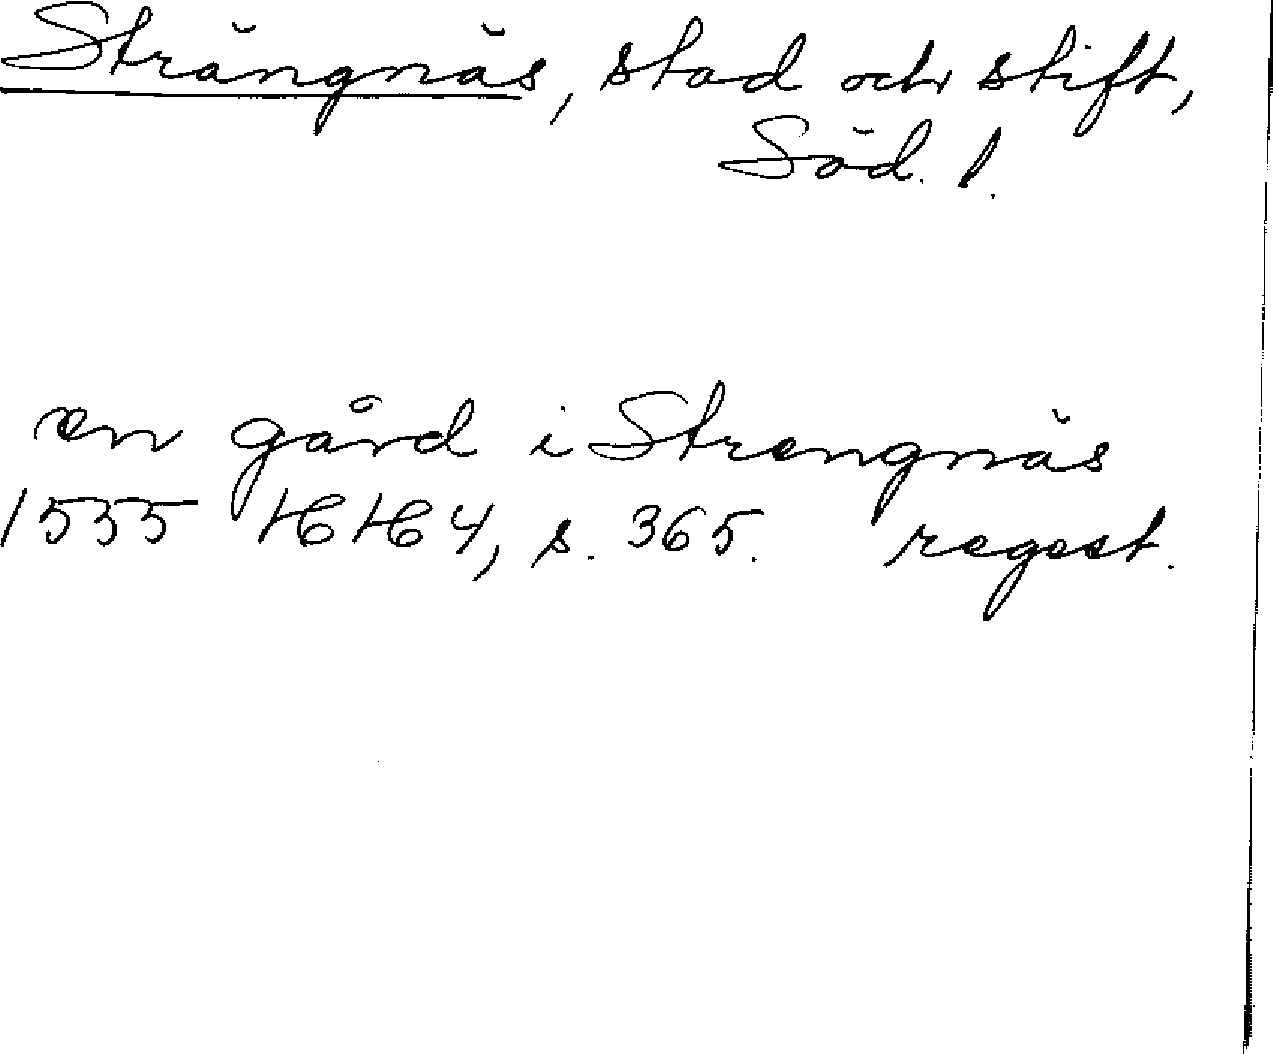 Strängnäs, stad och stift,
Söd. l.
en gård i Strengnäs
1535 HH 4, s. 365. regest.